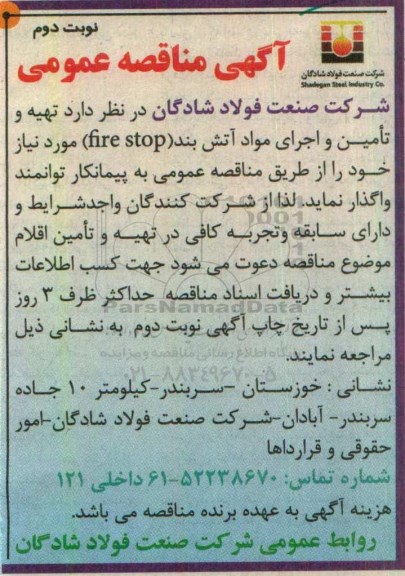 نوبت دوم
آگهی مناقصه عمومی
شرکت صنعت فولاد شادگان
Shadegan Steel Industry Co.
شرکت صنعت فولاد شادگان در نظر دارد تهیه و
تأمین و اجرای مواد آتش بند(fire stop) مورد نیاز
خود را از طریق مناقصه عمومی به پیمانکار توانمند
واگذار نماید. لذا از شرکت کنندگان واجدشرایط و
دارای سابقه وتجربه کافی در تهیه و تأمین اقلام
موضوع مناقصه دعوت می شود جهت کسب اطلاعات
بیشتر و دریافت اسناد مناقصه حداکثر ظرف ۳ روز
پس از تاریخ چاپ آگهی نوبت دوم به نشانی ذیل
مراجعه نمایند.
نشانی : خوزستان –سربندر-کیلومتر ۱۰ جاده
سربندر- آبادان-شرکت صنعت فولاد شادگان-امور
حقوقی و قراردادها
شماره تماس: ۵۲۲۳۸۶۷۰-۰۶۱ داخلی ۱۲۱
هزینه آگهی به عهده برنده مناقصه می باشد.
روابط عمومی شرکت صنعت فولاد شادگان
ParsNamadData
پایگاه اطلاع رسانی مناقصه و مزایده
۰۲۱-۸۸۳۴۹۶۷۰-۵